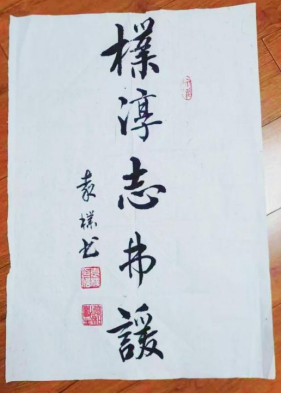 樸淳志弗諼
袁樸书